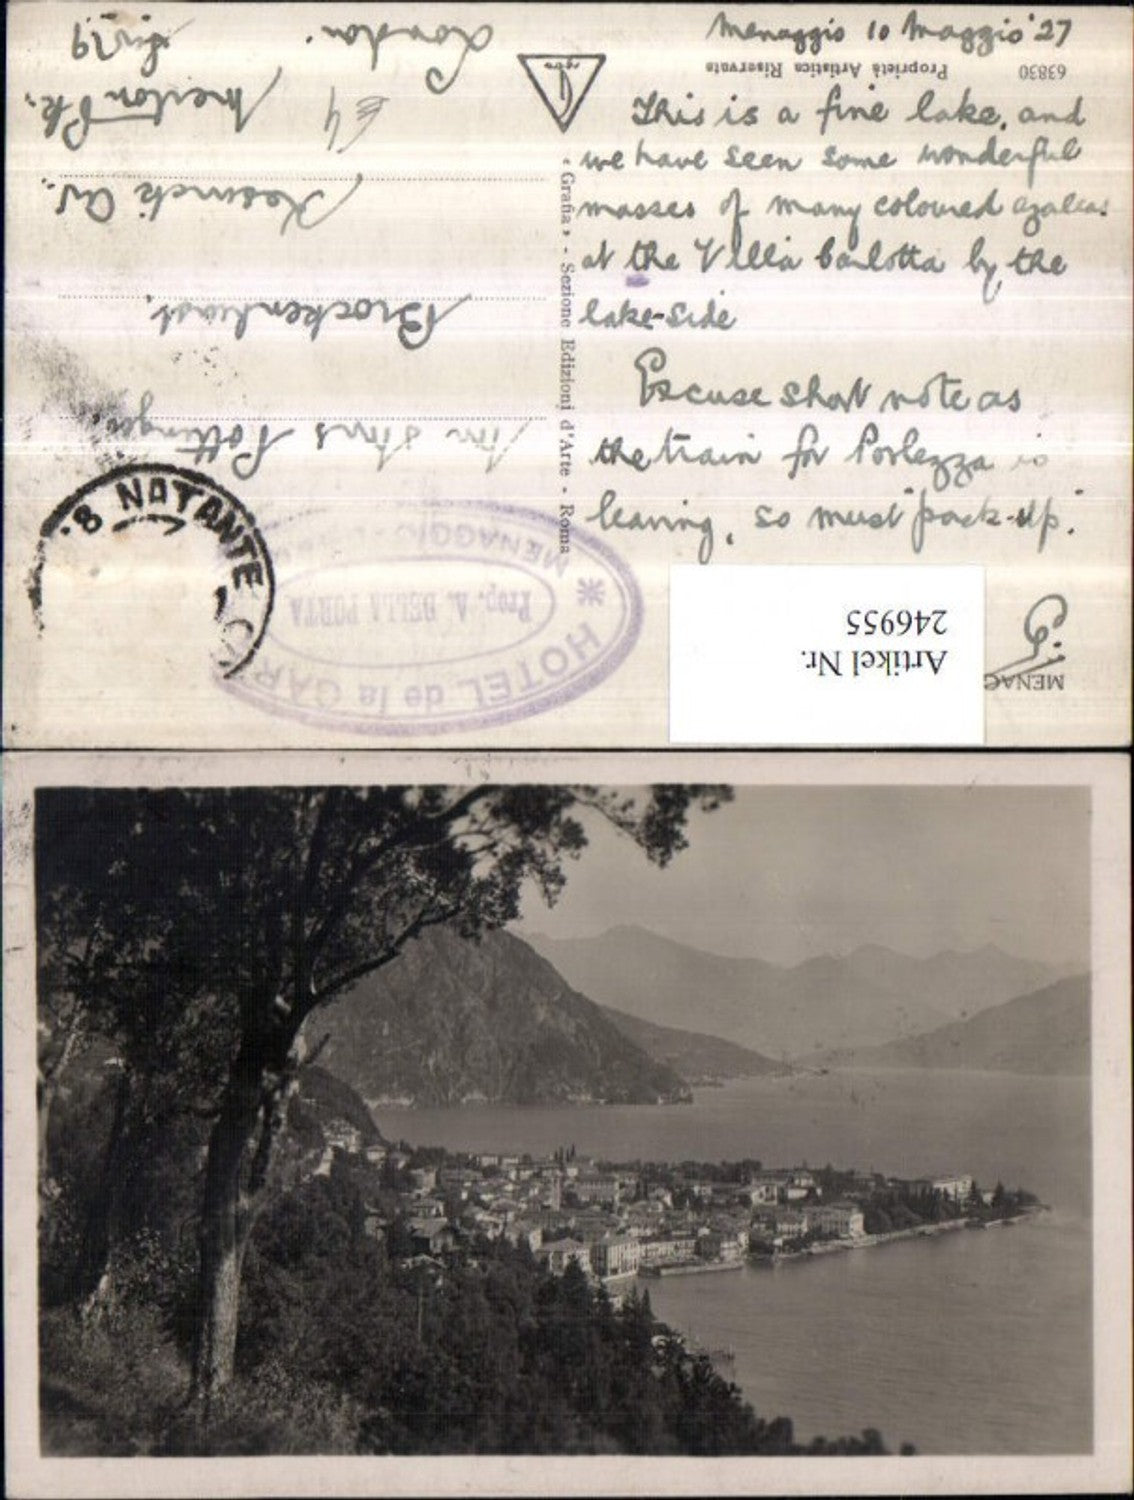 Menaggio 10 Maggio '27
This is a fine lake, and
we have seen some wonderful
masses of many coloured azaleas
at the Villa Carlotta by the
lake-side
Excuse short note as
the train for Porlezza is
leaving, so must "pack-up".
Proprietà Artistica Riservata
63830
Grafia» - Sezione Edizioni d'Arte - Roma
Pottinger
Brockenhurst.
Keswick Av.
London
MENAG
HOTEL de la GAR
MENAGGIO
Prop. A. DELLA PORTA
NATANTE
Artikel Nr.
246955